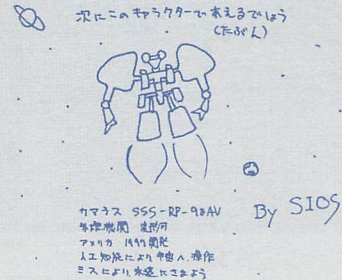 次にこのキャラクターであえるでしょう
(たぶん)
カマラス SSS-RP-98AV
アメリカ 1999開発
人工知能により宇宙へ。操作
ミスにより、永遠にさまよう
By SIOS